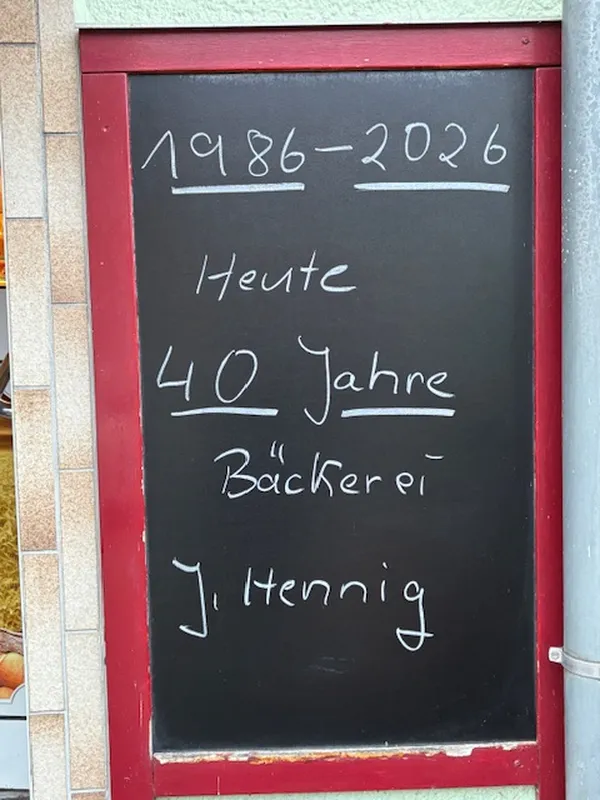 1986-2026
Heute
40 Jahre
Bäckerei
J. Hennig